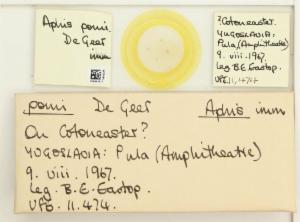 Aphis pomi.
De Geer
imm
?Cotoneaster.
YUGOSLAVIA:
Pula (Amphitheatre)
9. viii. 1967.
Leg. B.E. Eastop.
VFE. 11,474
pomi De Geer Aphis imm
On Cotoneaster?
YUGOSLAVIA: Pula (Amphitheatre)
9. viii. 1967.
Leg. B.E. Eastop.
VFE. 11.474.